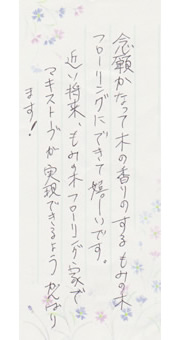 念願かなって木の香りのするもみの木
フローリングにできて嬉しいです。
近い将来、もみの木フローリング家で
マキストーブが実現できるよう がんばり
ます!